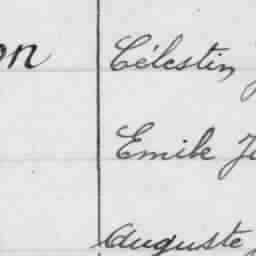 on Célestin
Emile
Auguste